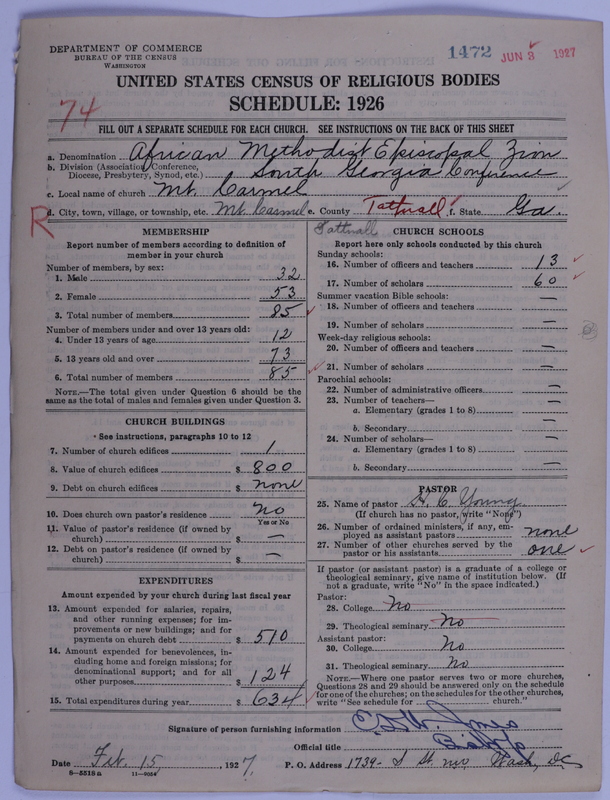 DEPARTMENT OF COMMERCE
BUREAU OF THE CENSUS
WASHINGTON
1472 JUN 3 1927
UNITED STATES CENSUS OF RELIGIOUS BODIES
SCHEDULE: 1926
74
FILL OUT A SEPARATE SCHEDULE FOR EACH CHURCH. SEE INSTRUCTIONS ON THE BACK OF THIS SHEET
a. Denomination African Methodist Episcopal Zion
b. Division (Association, Conference, Diocese, Presbytery, Synod, etc.) South Georgia Conference
c. Local name of church Mt. Carmel
R
d. City, town, village, or township, etc. Mt. Carmel e. County Tattnall f. State Ga.
Tattnall
MEMBERSHIP
Report number of members according to definition of member in your church
Number of members, by sex:
1. Male 32
2. Female 53
3. Total number of members 85
Number of members under and over 13 years old:
4. Under 13 years of age 12
5. 13 years old and over 73
6. Total number of members 85
NOTE.—The total given under Question 6 should be the same as the total of males and females given under Question 3.
CHURCH BUILDINGS
• See instructions, paragraphs 10 to 12
7. Number of church edifices 1
8. Value of church edifices $ 800
9. Debt on church edifices $ none
10. Does church own pastor's residence No
Yes or No
11. Value of pastor's residence (if owned by church) $ —
12. Debt on pastor's residence (if owned by church) $ —
EXPENDITURES
Amount expended by your church during last fiscal year
13. Amount expended for salaries, repairs, and other running expenses; for improvements or new buildings; and for payments on church debt $ 510
14. Amount expended for benevolences, including home and foreign missions; for denominational support; and for all other purposes $ 124
15. Total expenditures during year $ 634
CHURCH SCHOOLS
Report here only schools conducted by this church
Sunday schools:
16. Number of officers and teachers 13
17. Number of scholars 60
Summer vacation Bible schools:
18. Number of officers and teachers —
19. Number of scholars —
Week-day religious schools:
20. Number of officers and teachers —
21. Number of scholars —
Parochial schools:
22. Number of administrative officers —
23. Number of teachers—
a. Elementary (grades 1 to 8) —
b. Secondary —
24. Number of scholars—
a. Elementary (grades 1 to 8) —
b. Secondary —
PASTOR
25. Name of pastor H. C. Young
(If church has no pastor, write "None")
26. Number of ordained ministers, if any, employed as assistant pastors none
27. Number of other churches served by the pastor or his assistants one
If pastor (or assistant pastor) is a graduate of a college or theological seminary, give name of institution below. (If not a graduate, write "No" in the space indicated.)
Pastor:
28. College No
29. Theological seminary No
Assistant pastor:
30. College No
31. Theological seminary No
NOTE.—Where one pastor serves two or more churches, Questions 28 and 29 should be answered only on the schedule for one of the churches; on the schedules for the other churches, write "See schedule for church."
Signature of person furnishing information E. D. W. Jones
Official title Bishop
Date Feb. 15, 1927. P. O. Address 1739- S St. NW, Wash, DC
8—5518 a 11—9034